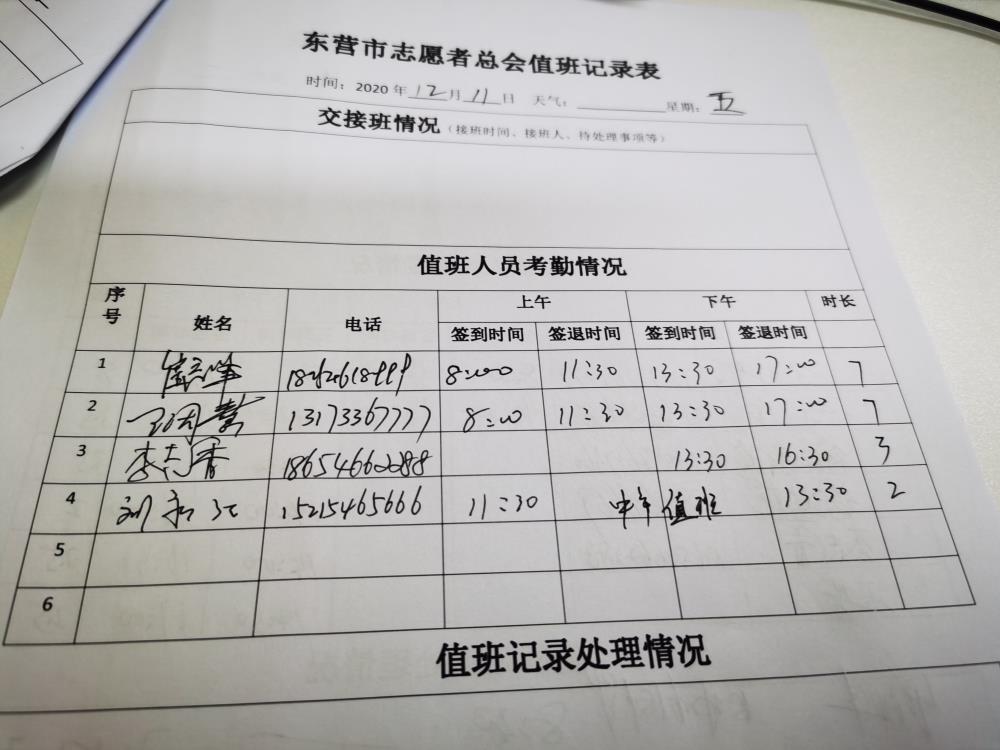 东营市志愿者总会值班记录表
时间：2020年12月11日 天气： 星期：五
交接班情况（接班时间、接班人、待处理事项等）
值班人员考勤情况
序号 姓名 电话 上午 下午 时长
签到时间 签退时间 签到时间 签退时间
1 8:00 11:30 13:30 17:00 7
2 13173367777 8:00 11:30 13:30 17:00 7
3 李志军 18654660288 13:30 16:30 3
4 刘 15215465666 11:30 中午值班 13:30 2
5
6
值班记录处理情况